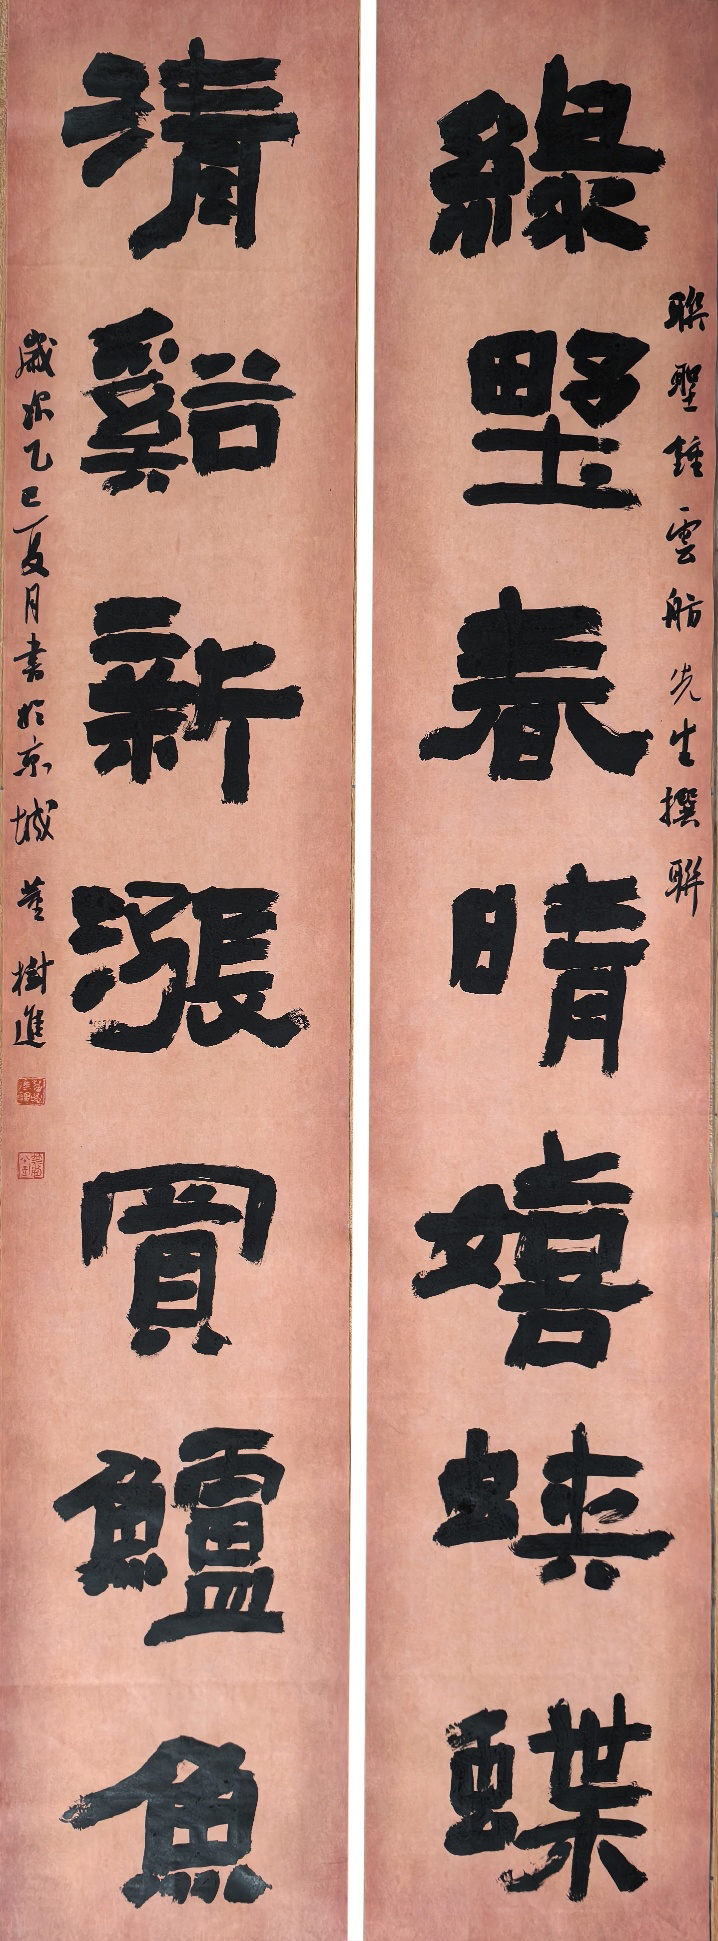 聯聖鍾雲舫先生撰聯
綠野春晴嬉蛺蝶
清谿新漲買鱸魚
歲次乙巳夏月書於京城 董樹進